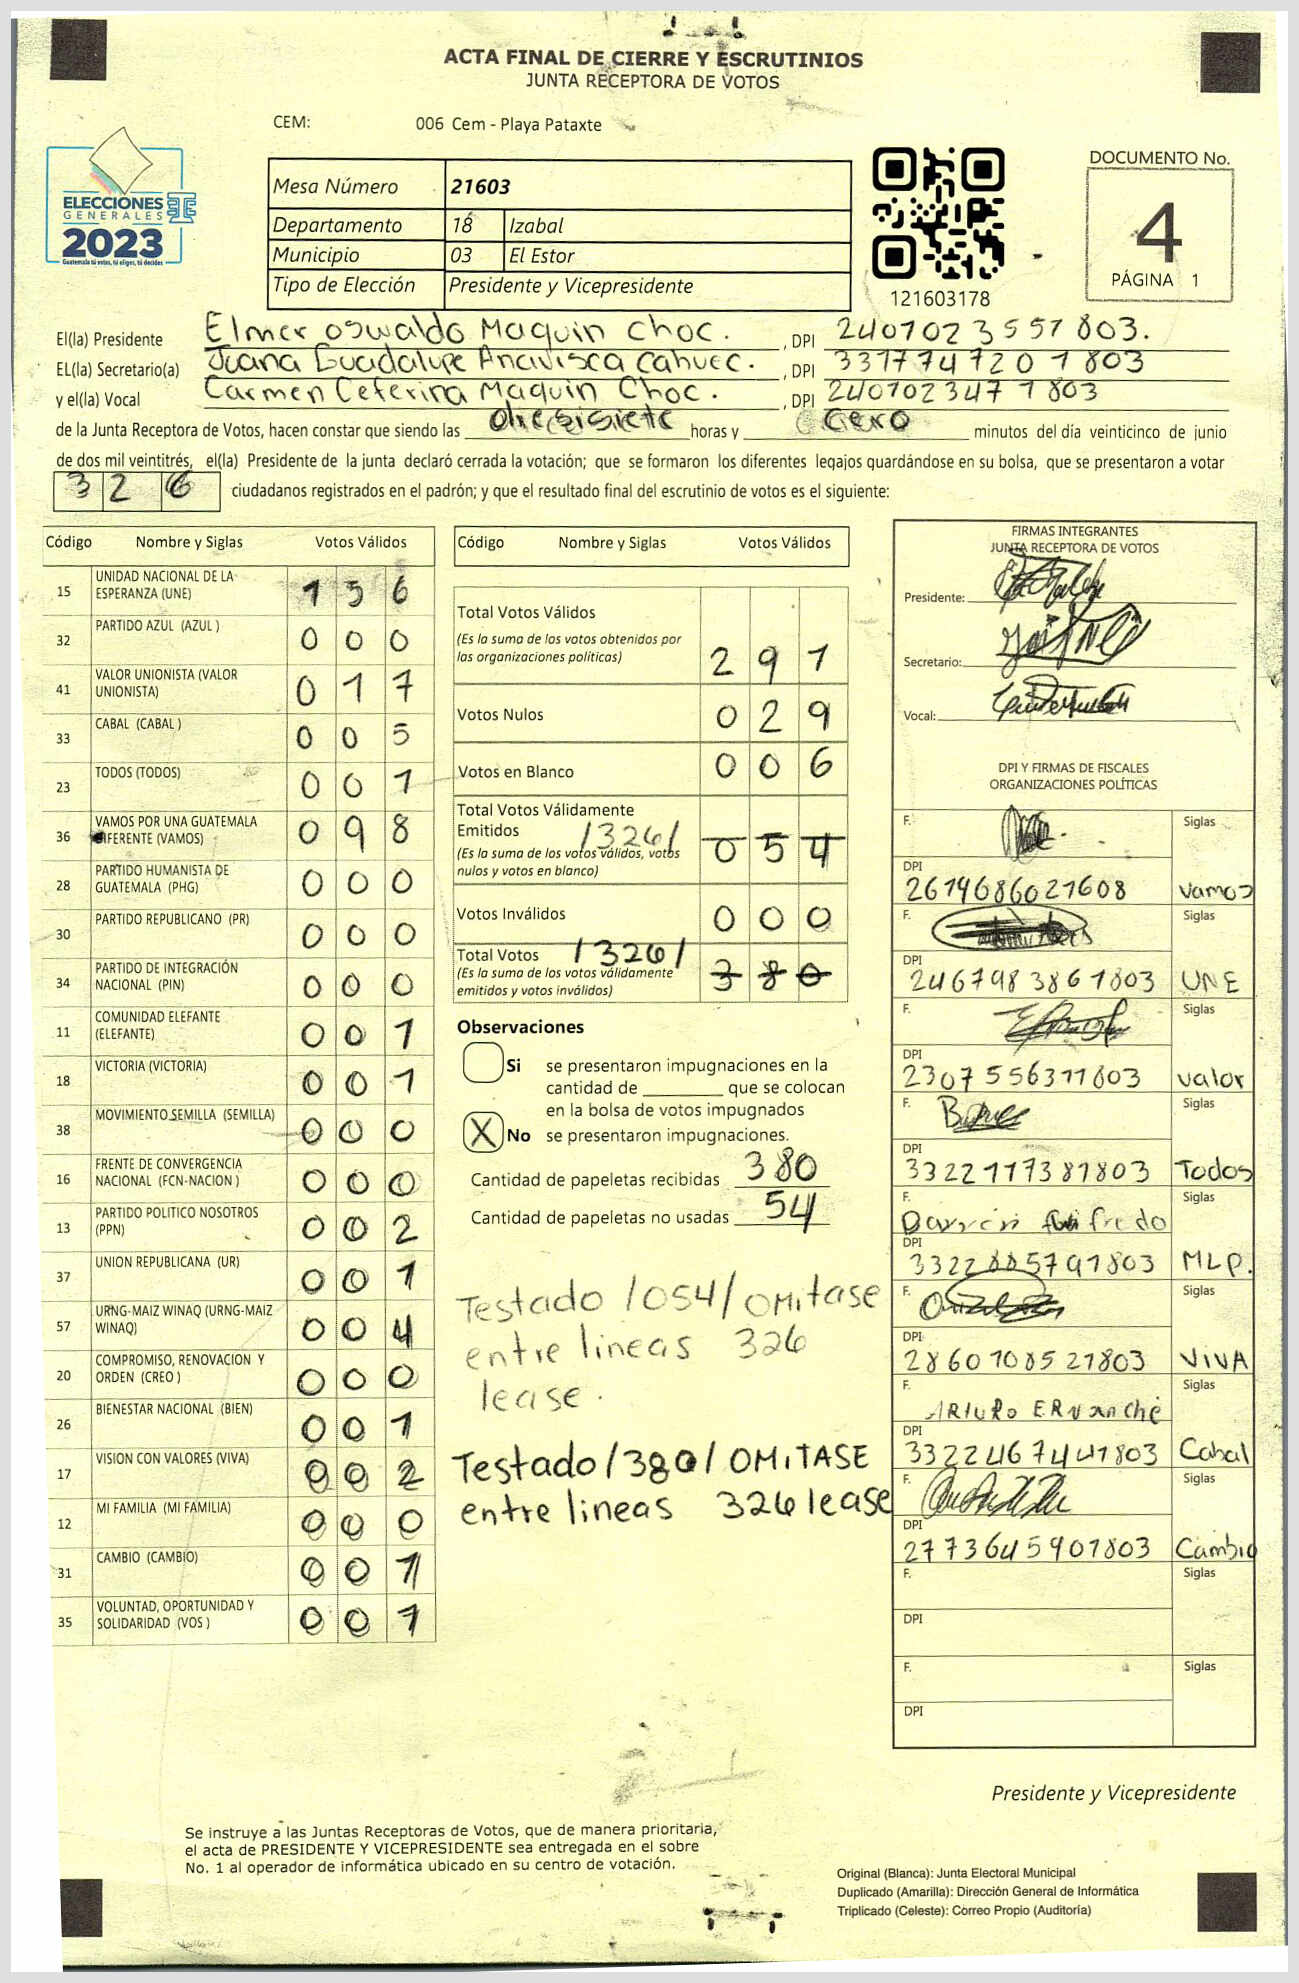 ACTA FINAL DE CIERRE Y ESCRUTINIOS
JUNTA RECEPTORA DE VOTOS
CEM: 006 Cem - Playa Pataxte
ELECCIONES
GENERALES
2023
Guatemala tú votas, tú eliges, tú decides
Mesa Número 21603
Departamento 18 Izabal
Municipio 03 El Estor
Tipo de Elección Presidente y Vicepresidente
121603178
DOCUMENTO No.
4
PÁGINA 1
El(la) Presidente Elmer Oswaldo Maquin Choc. , DPI 2407023557803.
EL(la) Secretario(a) Juana Guadalupe Cahuec. , DPI 3317747201803
y el(la) Vocal Carmen Ceferina Maquin Choc. , DPI 2407023477803
de la Junta Receptora de Votos, hacen constar que siendo las diesisiete horas y Cero minutos del día veinticinco de junio
de dos mil veintitrés, el(la) Presidente de la junta declaró cerrada la votación; que se formaron los diferentes legajos guardándose en su bolsa, que se presentaron a votar
326 ciudadanos registrados en el padrón; y que el resultado final del escrutinio de votos es el siguiente:
Código Nombre y Siglas Votos Válidos
15 UNIDAD NACIONAL DE LA ESPERANZA (UNE) 1 5 6
32 PARTIDO AZUL (AZUL ) 0 0 0
41 VALOR UNIONISTA (VALOR UNIONISTA) 0 1 7
33 CABAL (CABAL ) 0 0 5
23 TODOS (TODOS) 0 0 1
36 VAMOS POR UNA GUATEMALA DIFERENTE (VAMOS) 0 9 8
28 PARTIDO HUMANISTA DE GUATEMALA (PHG) 0 0 0
30 PARTIDO REPUBLICANO (PR) 0 0 0
34 PARTIDO DE INTEGRACIÓN NACIONAL (PIN) 0 0 0
11 COMUNIDAD ELEFANTE (ELEFANTE) 0 0 1
18 VICTORIA (VICTORIA) 0 0 1
38 MOVIMIENTO SEMILLA (SEMILLA) 0 0 0
16 FRENTE DE CONVERGENCIA NACIONAL (FCN-NACION ) 0 0 0
13 PARTIDO POLITICO NOSOTROS (PPN) 0 0 2
37 UNION REPUBLICANA (UR) 0 0 1
57 URNG-MAIZ WINAQ (URNG-MAIZ WINAQ) 0 0 4
20 COMPROMISO, RENOVACION Y ORDEN (CREO ) 0 0 0
26 BIENESTAR NACIONAL (BIEN) 0 0 1
17 VISION CON VALORES (VIVA) 0 0 2
12 MI FAMILIA (MI FAMILIA) 0 0 0
31 CAMBIO (CAMBIO) 0 0 1
35 VOLUNTAD, OPORTUNIDAD Y SOLIDARIDAD (VOS ) 0 0 1
Código Nombre y Siglas Votos Válidos
Total Votos Válidos
(Es la suma de los votos obtenidos por
las organizaciones políticas) 2 9 1
Votos Nulos 0 2 9
Votos en Blanco 0 0 6
Total Votos Válidamente
Emitidos /326/ 0 5 4
(Es la suma de los votos válidos, votos
nulos y votos en blanco)
Votos Inválidos 0 0 0
Total Votos /326/
(Es la suma de los votos válidamente 3 8 0
emitidos y votos inválidos)
Observaciones
Si se presentaron impugnaciones en la
cantidad de ________ que se colocan
en la bolsa de votos impugnados
X No se presentaron impugnaciones.
Cantidad de papeletas recibidas 380
Cantidad de papeletas no usadas 54
Testado /054/ OMitase
entre lineas 326
lease.
Testado/380/ OMiTASE
entre lineas 326 lease
FIRMAS INTEGRANTES
JUNTA RECEPTORA DE VOTOS
Presidente:
Secretario:
Vocal:
DPI Y FIRMAS DE FISCALES
ORGANIZACIONES POLÍTICAS
F. Siglas
DPI
2614686021608 Vamos
F. Siglas
DPI
2467983861803 UNE
F. Siglas
DPI
2307556311803 valor
F. Siglas
DPI
3322117381803 Todos
F. Siglas
DPI
MLP.
F. Siglas
DPI
2860108521803 ViVA
F. Siglas
ARTURO
DPI
3322467441803 Cabal
F. Siglas
DPI
2773645901803 Cambio
F. Siglas
DPI
F. Siglas
DPI
Presidente y Vicepresidente
Se instruye a las Juntas Receptoras de Votos, que de manera prioritaria,
el acta de PRESIDENTE Y VICEPRESIDENTE sea entregada en el sobre
No. 1 al operador de informática ubicado en su centro de votación.
Original (Blanca): Junta Electoral Municipal
Duplicado (Amarilla): Dirección General de Informática
Triplicado (Celeste): Correo Propio (Auditoría)